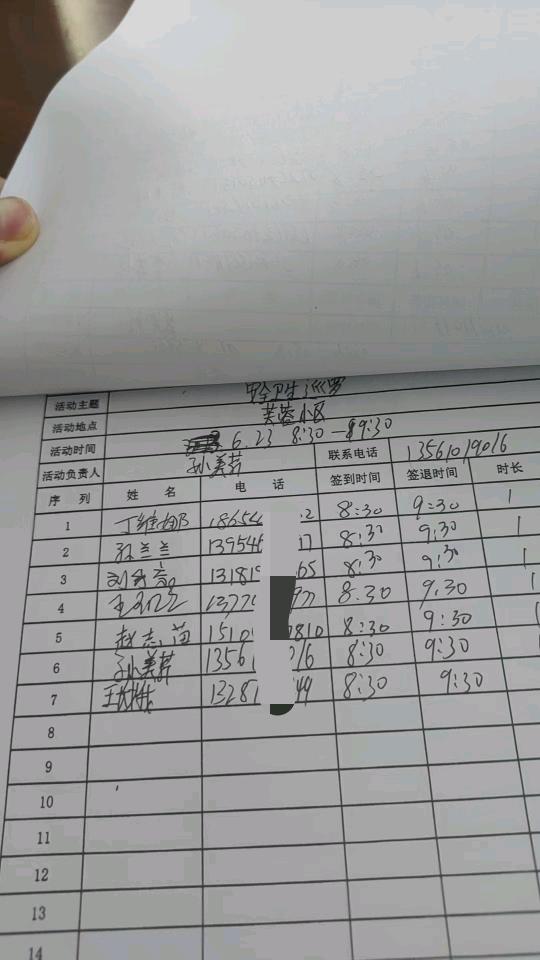 活动主题 安全卫生巡罗
活动地点 芙蓉小区
活动时间 6.23 8:30—9:30
活动负责人 孙美芹 联系电话 13561019016
序 列 姓 名 电 话 签到时间 签退时间 时长
1 丁维娜 18654 2 8:30 9:30 1
2 孙兰兰 139546 17 8:30 9:30 1
3 13181 65 8:30 9:30 1
4 8:30 9:30 1
5 赵志苗 1510 810 8:30 9:30 1
6 孙美芹 13561 016 8:30 9:30 1
7 1328 49 8:30 9:30
8
9
10
11
12
13
14